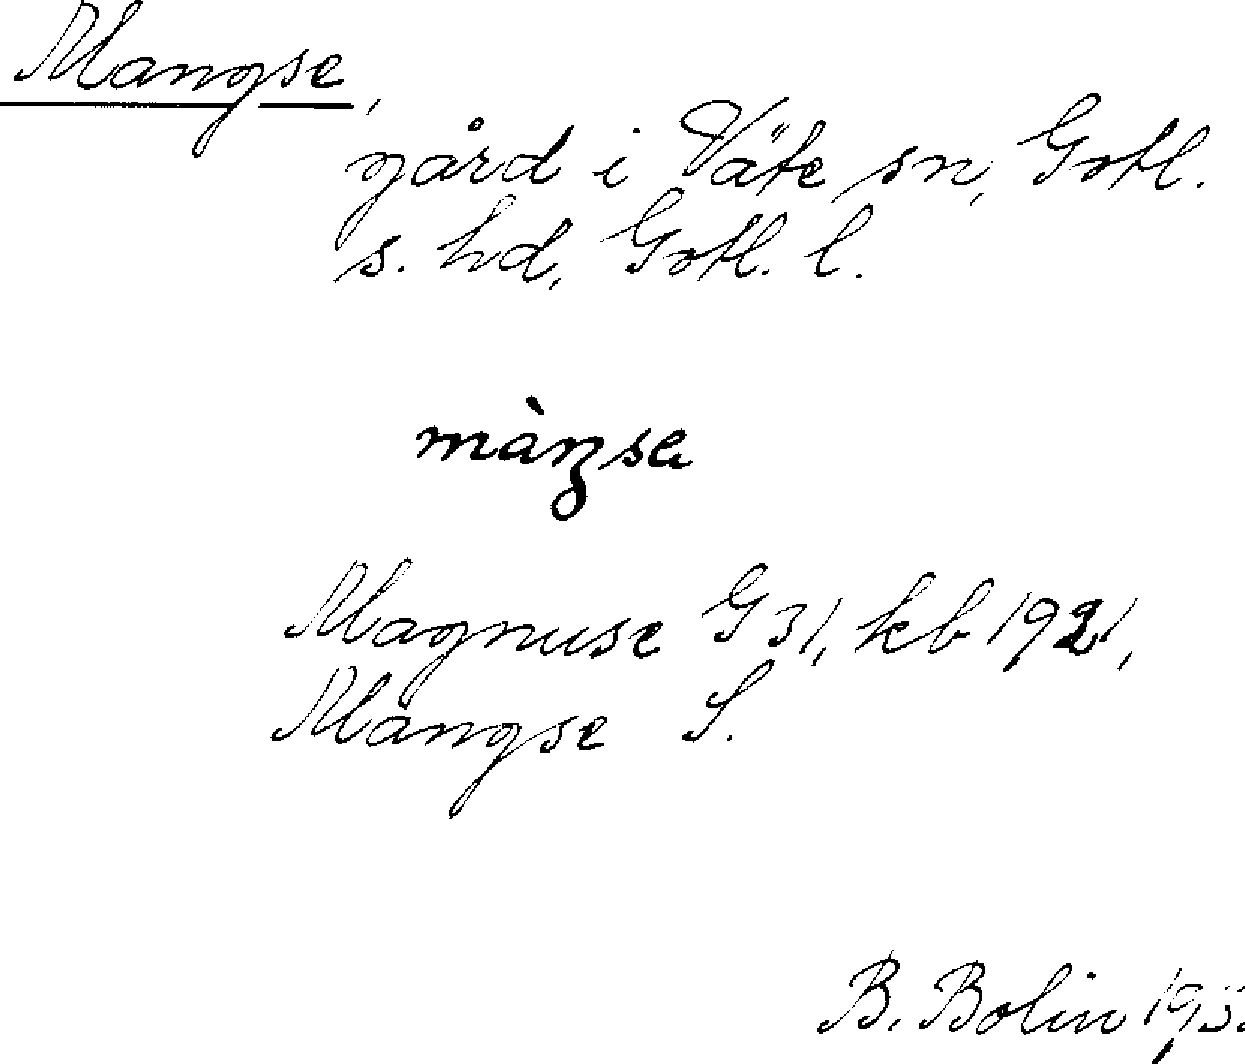 Mangse,
gård i Väte sn, Gotl.
s. hd, Gotl. l.
màŋse
Magnuse G 31, kb 1921,
Mangse S.
B. Bolin